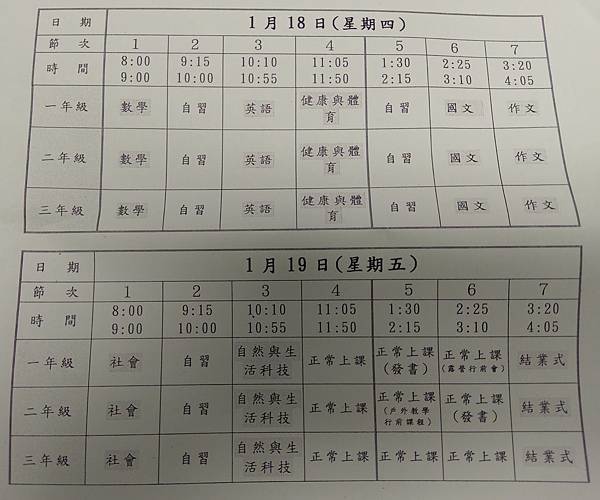 日 期 1月18日(星期四)
節 次 1 2 3 4 5 6 7
時 間 8:00 9:15 10:10 11:05 1:30 2:25 3:20
9:00 10:00 10:55 11:50 2:15 3:10 4:05
一年級 數學 自習 英語 健康與體育 自習 國文 作文
二年級 數學 自習 英語 健康與體育 自習 國文 作文
三年級 數學 自習 英語 健康與體育 自習 國文 作文
日 期 1月19日(星期五)
節 次 1 2 3 4 5 6 7
時 間 8:00 9:15 10:10 11:05 1:30 2:25 3:20
9:00 10:00 10:55 11:50 2:15 3:10 4:05
一年級 社會 自習 自然與生活科技 正常上課 正常上課(發書) 正常上課(露營行前會) 結業式
二年級 社會 自習 自然與生活科技 正常上課 正常上課(戶外教學行前課程) 正常上課(發書) 結業式
三年級 社會 自習 自然與生活科技 正常上課 正常上課 正常上課 結業式